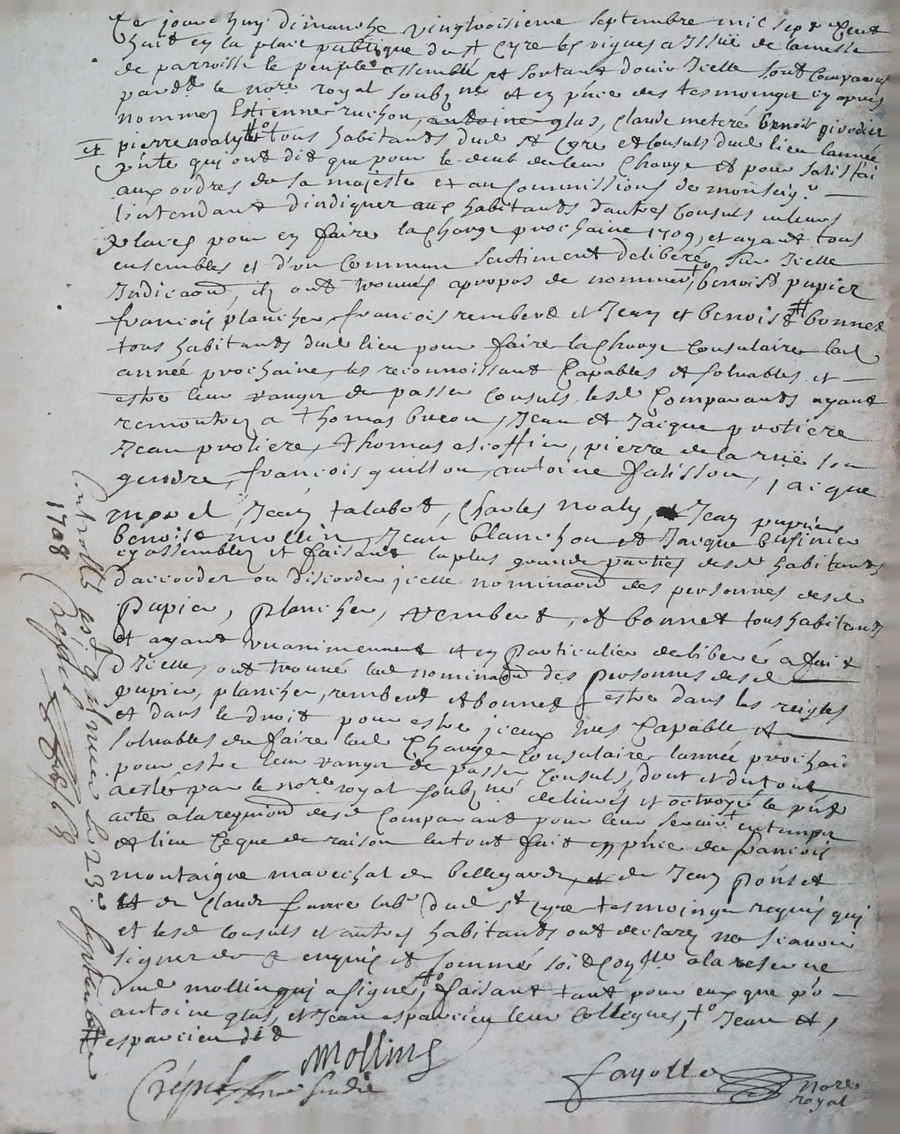 Ce jourd'huy dimanche vingtroisieme septembre mil sept cent
huit en la place publique de St Cyre les vignes a Issuë de la messe
de parroisse le peuple assemblé et sortant d'ouir Icelle sont comparus
pardt le nore royal soubzné et en pnce des tesmoings cy apres
nommez Estienne ruchon, antoine glas, Claude meteré benoit givodier
pierre noaly tous habitants dud St Cyre et Consuls dud lieu lannée
pnte qui ont dit que pour le deub de leur Charge et pour satisfai
aux ordres de sa majesté et au Commissions de monseigr
l'intendant d'indiquer aux habitants d'autres Consuls en leurs
places pour en faire la Charge prochaine 1709, et ayant tous
ensembles et d'un Commun sentiment deliberé sur Icelle
Indicaon, ils ont trouvés apropos de nommer, benoist papier
françois plancher, françois rembert et Jean et benoist bonnet
tous habitants dud lieu pour faire la Charge Consulaire lad
année prochaine, les reconnoissant Capables et solvables et
estre leur ranger de passer Consuls, lesd Comparants ayant
remontez a Thomas Jean et Jacque protiere
Jean protiere, Thomas escoffier, pierre de la rüe son
gendre, françois guillon, antoine falisson, Jacque
morel, Jean talabot, Charles noaly, Jean papier
benoist mollin, Jean blanchon et Jacque
en assemblez et faisant la plus grande parties desd habitants
d'accorder ou discorder jcelle nominaon des personnes desd
papier, plancher, rembert, et bonnet tous habitants
et ayant unanimement et en particulier deliberé a fait
d'Icelle, ont trouvé lad nominaon des personnes desd
papier, plancher, rembert et bonnet estre dans les reigles
et dans le droit pour estre jceux Capable et
solvables de faire lad Charge Consulaire lannée prochai
pour estre leur ranger de passer Consuls, dont et du tout
acte a esté par le nore royal soubzné delivrés et octroyé le pnt
acte a la requision desd Comparant pour leur servir en temps
et lieu Ceque de raison le tout fait en pnce de françois
montaigne marechal de bellegarde, de Jean poncet
et de Claude farre labr dud St Cyre tesmoings requis qui
et lesd Consuls et autres habitants ont declarez ne scavoir
signer de ce enquis et sommé a la reserve
dud mollin qui a signé, faisant tant pour eux que po
antoine glas, et Jean esparcieu leur collegues, Jean et
esparcieu
mollin
fayolle nore
royal
Controllé a le 23e septembre
1708